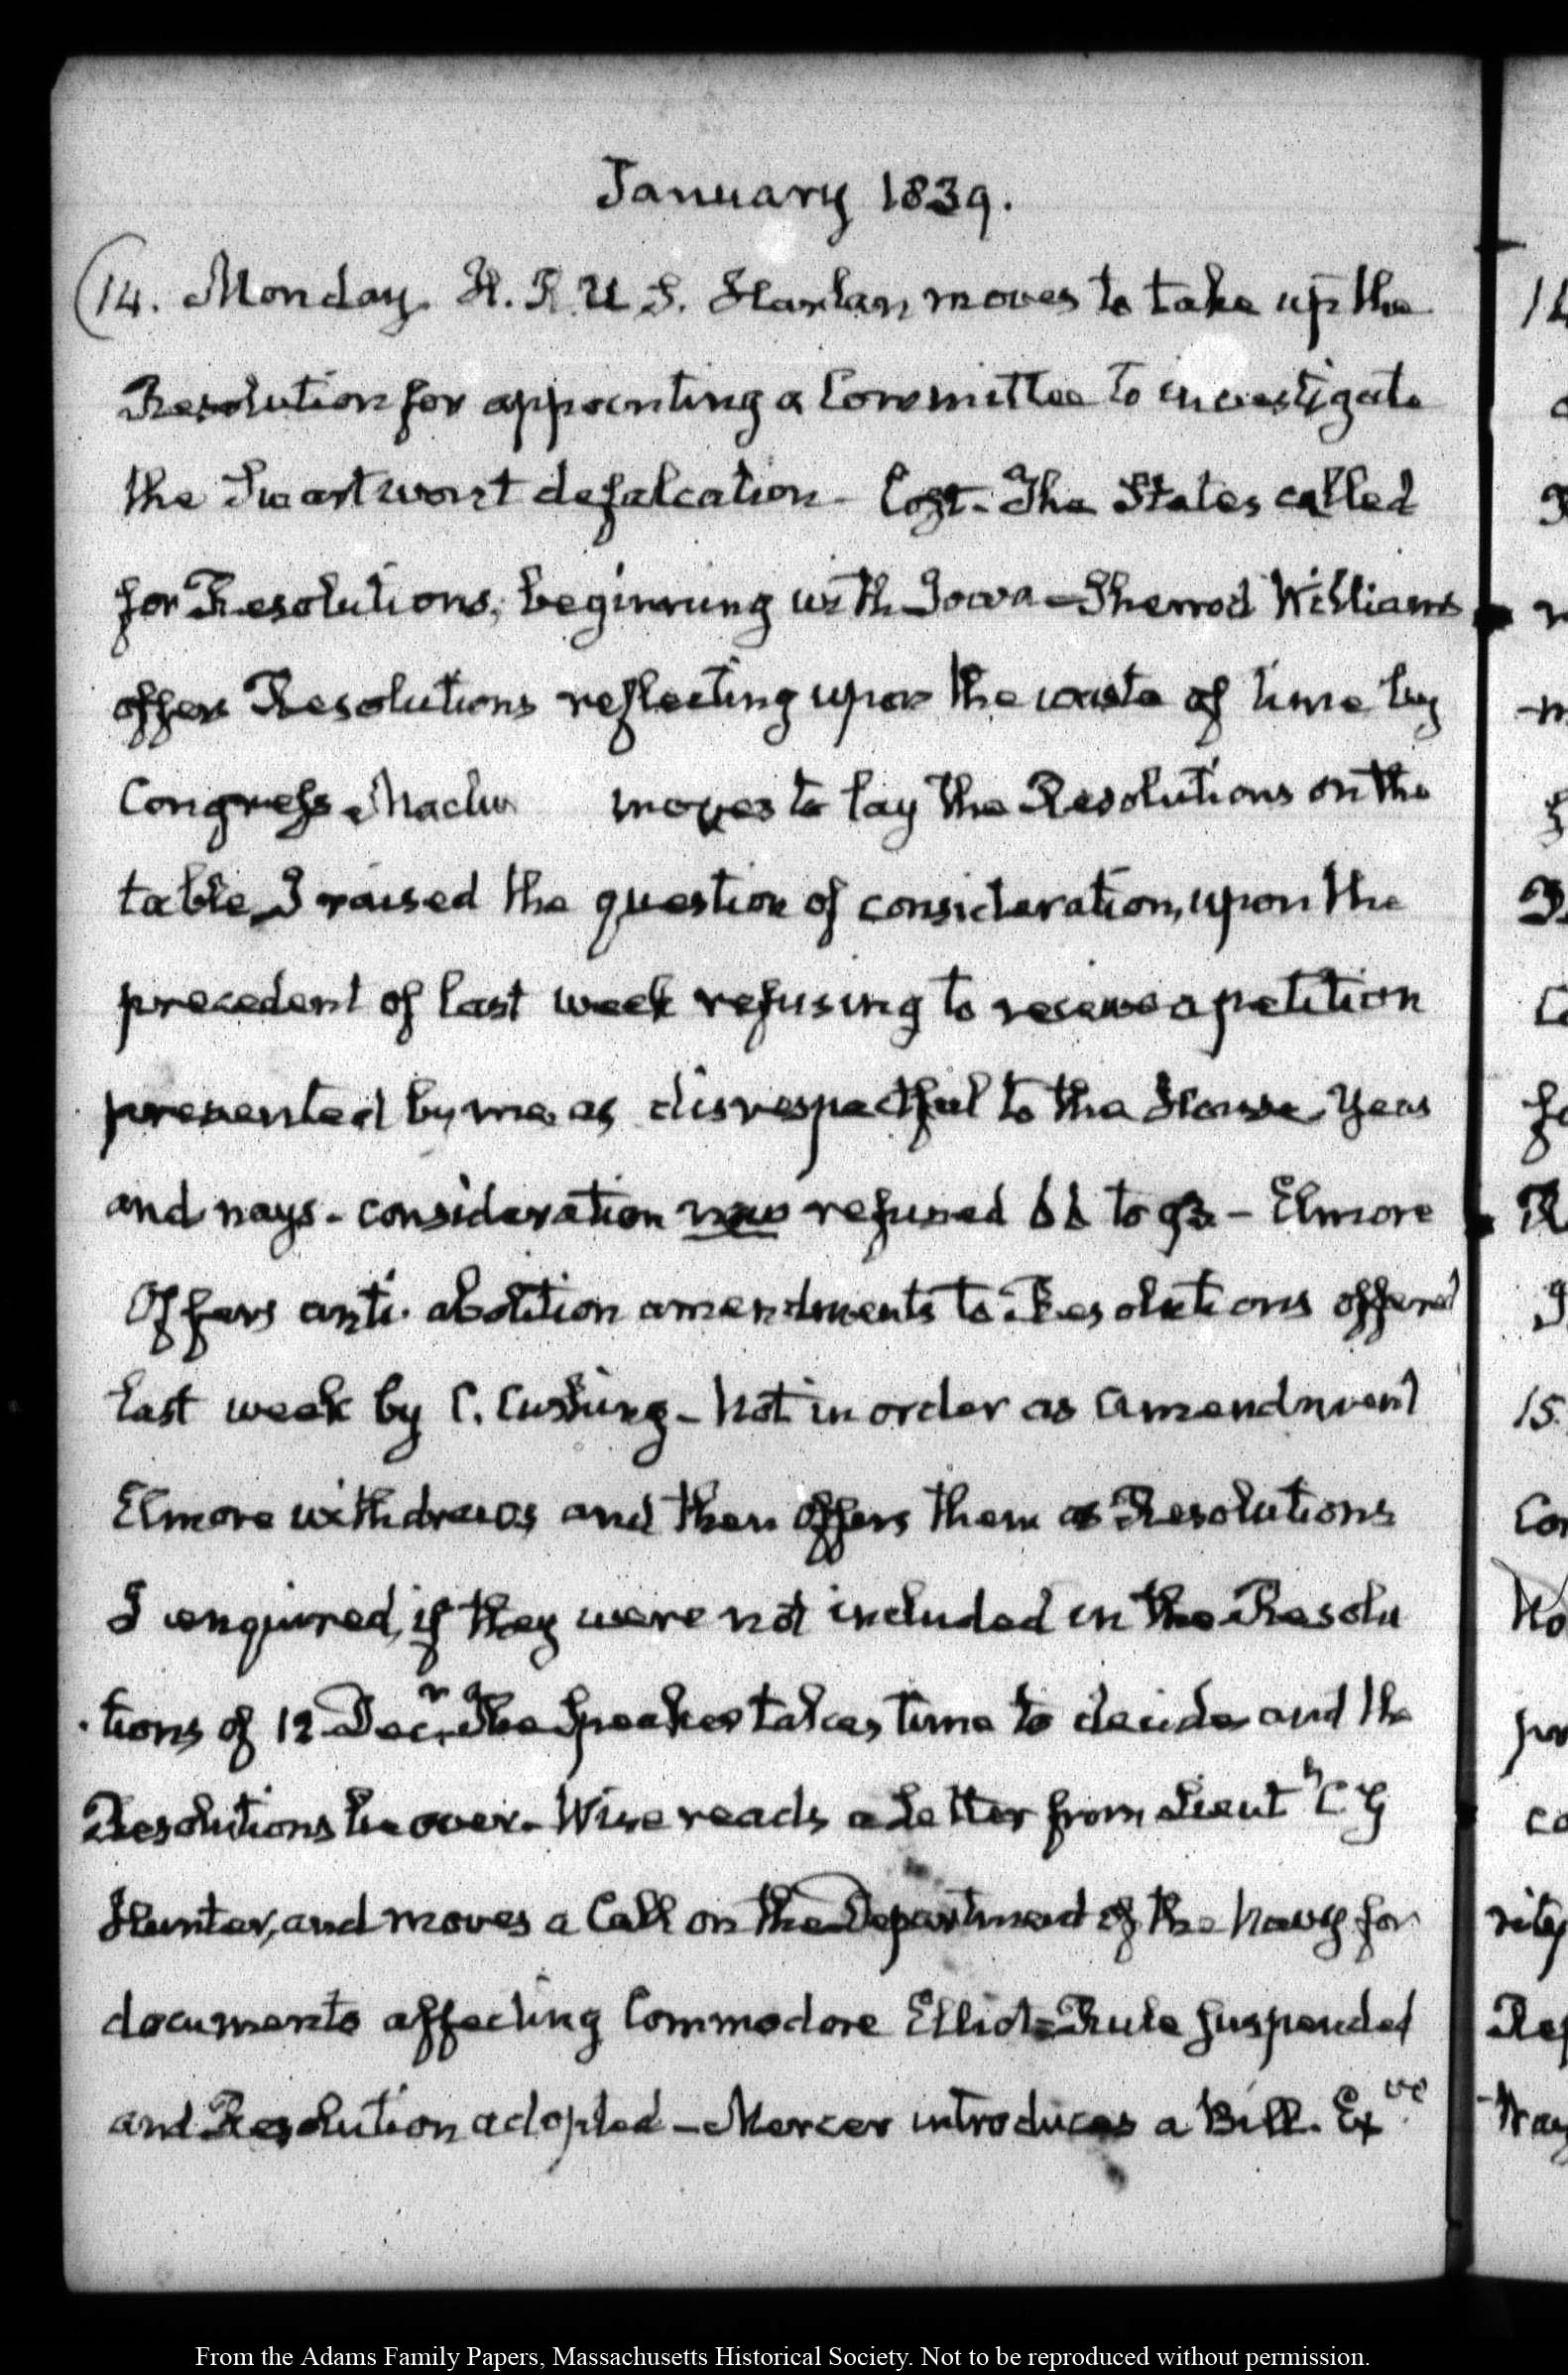 January 1839.
(14. Monday. H. R. U S. Harlan moves to take up the
Resolution for appointing a Committee to investigate
the Swartwort defalcation - Lost. The States called
for Resolutions, beginning with Iowa - Sherrod Williams
offers Resolutions reflecting upon the waste of time by
Congress. moves to lay the Resolutions on the
table. I raised the question of consideration, upon the
precedent of last week refusing to receive a petition
presented by me as disrespectful to the House. Yeas
and nays - consideration now refused 66 to 93 - Elmore
Offers anti-abolition amendments to Resolutions offered
last week by C. Cushing - Not in order as amendment
Elmore withdraws and then offers them as Resolutions
I enquired, if they were not included in the Resolu
tions of 12 Decr. The Speaker takes time to decide and the
Resolutions lie over. Wise reads a Letter from Lieut C G
Hunter, and moves a Call on the Department of the Navy for
documents affecting Commodore Elliot - Rule suspended
and Resolution adopted - Mercer introduces a Bill. Exve.
14
15.
rity
From the Adams Family Papers, Massachusetts Historical Society. Not to be reproduced without permission.